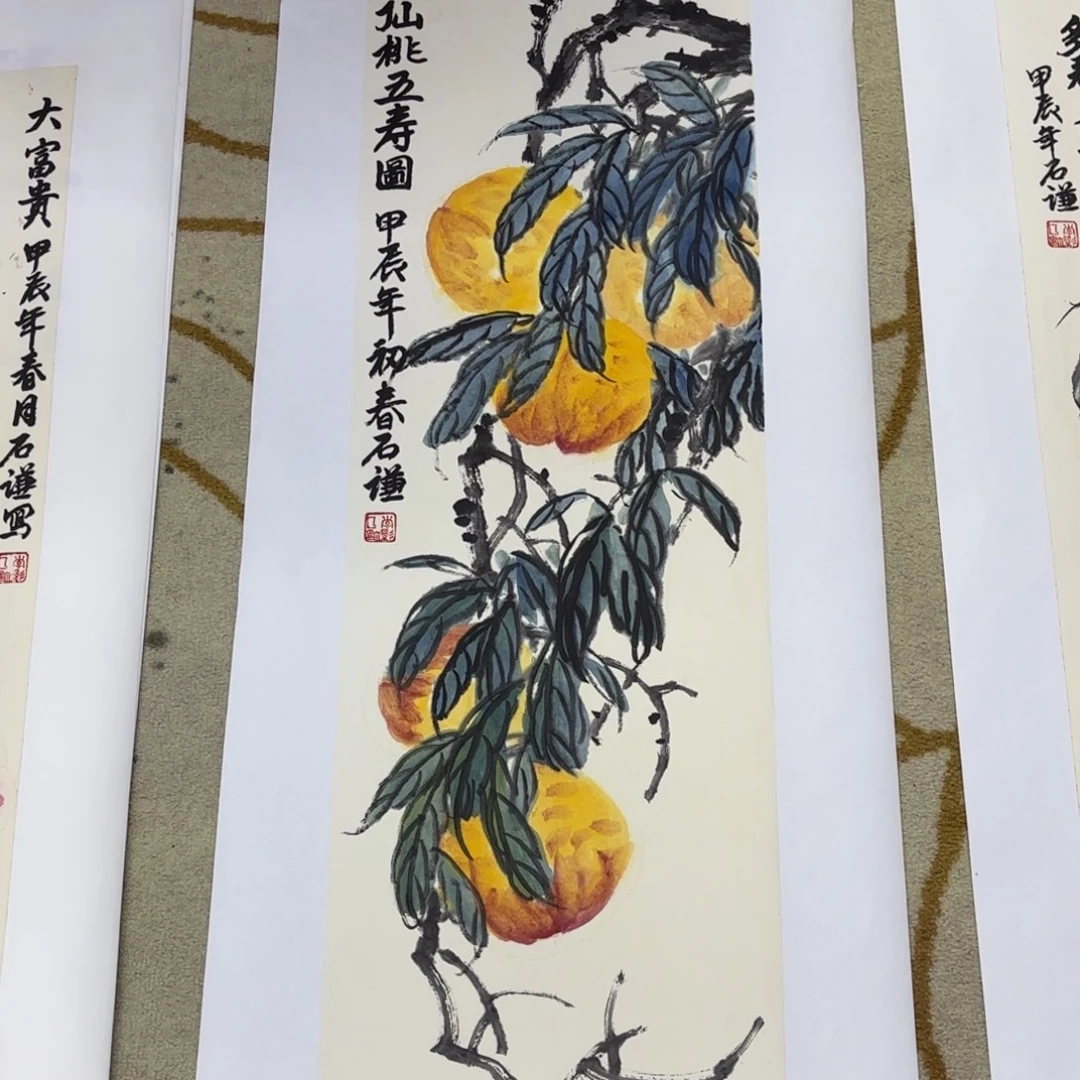 大富贵 甲辰年春月石谦写
仙桃五寿圖 甲辰年初春石谦
甲辰年石谦